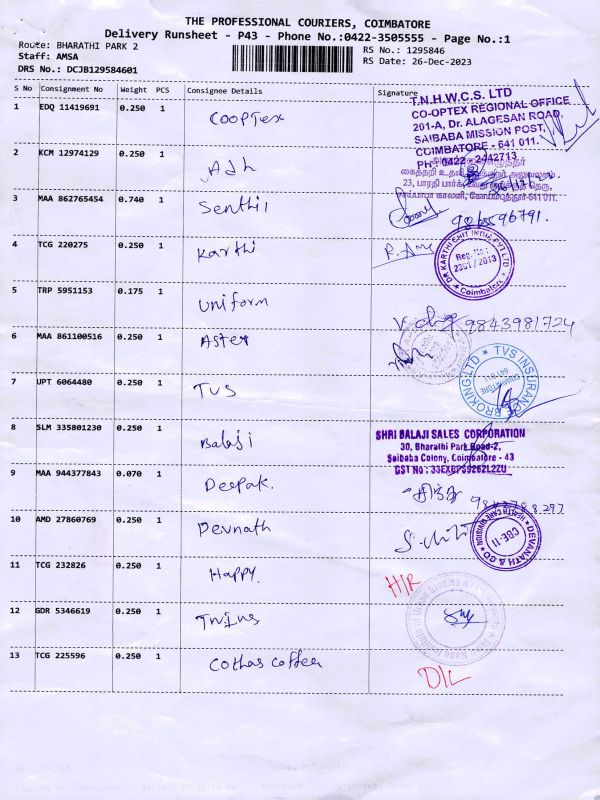 THE PROFESSIONAL COURIERS, COIMBATORE
Delivery Runsheet - P43 - Phone No.:0422-3505555 - Page No.:1
Route: BHARATHI PARK 2
RS No.: 1295846
Staff: AMSA
RS Date: 26-Dec-2023
DRS No.: DCJB129584601
S No Consignment No Weight PCS Consignee Details Signature
1 EDQ 11419691 0.250 1 COOPTEX
T.N.H.W.C.S. LTD
CO-OPTEX REGIONAL OFFICE
201-A, Dr. ALAGESAN ROAD,
SAIBABA MISSION POST,
COIMBATORE - 641 011.
PH: 0422 - 2442713
2 KCM 12974129 0.250 1
23, பாரதி பார்க்
3 MAA 862765454 0.740 1 Senthil
4 TCG 220275 0.250 1 Karthi
DR KARTHI CHIT INDIA PVT LTD
Reg. No :
2301 / 2013
Coimbatore
5 TRP 5951153 0.175 1 Uniform
9843981724
6 MAA 861100516 0.250 1 Aster
7 UPT 6064480 0.250 1 TVS
TVS INSURANCE BROKING LTD
8 SLM 335801230 0.250 1 Balaji
SHRI BALAJI SALES CORPORATION
30, Bharathi Park Road-2,
Saibaba Colony, Coimbatore - 43
9 MAA 944377843 0.070 1 Deepak.
10 AMD 27860769 0.250 1 Devnath
DEVANATH & CO
HEALTH CARE DIVISION
CBE-11
11 TCG 232826 0.250 1 Happy.
H/R
12 GDR 5346619 0.250 1
13 TCG 225596 0.250 1 Cothas Coffee
D/L